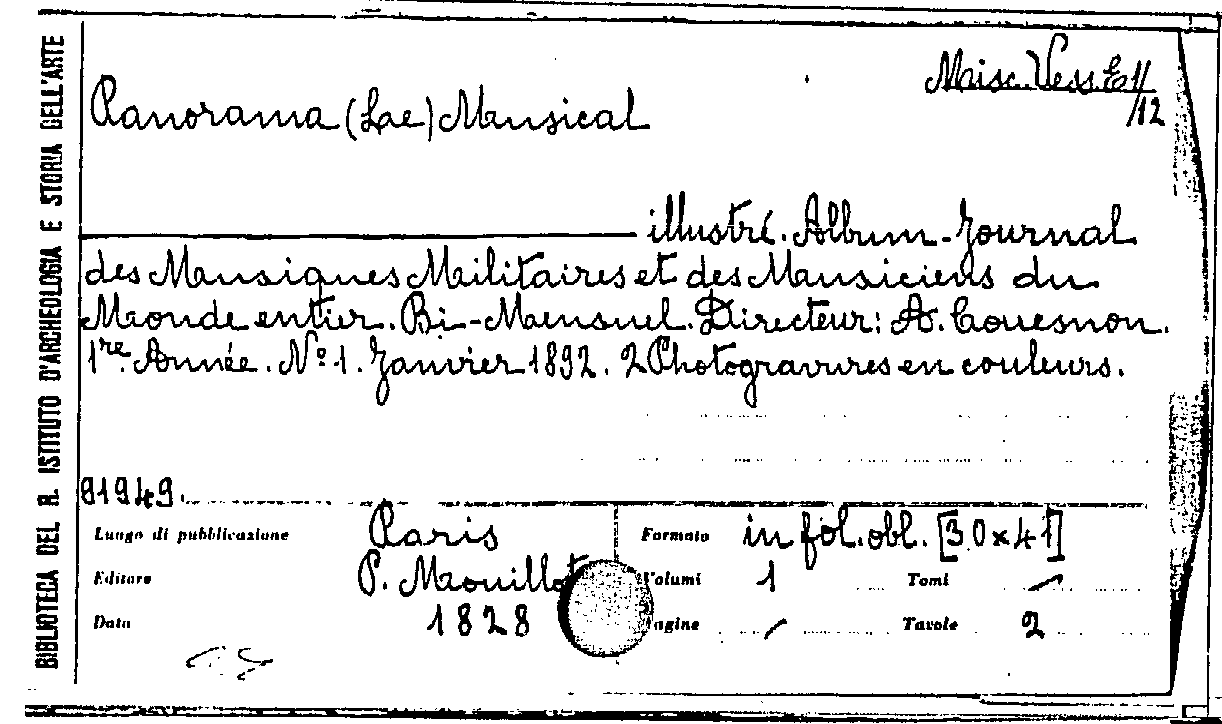 BIBLIOTECA DEL R. ISTITUTO D'ARCHEOLOGIA E STORIA DELL'ARTE
Misc. Vess. E 11/12
Panorama (Le) Musical
illustré. Album-Journal
des Musiques Militaires et des Musiciens du
Monde entier. Bi-Mensuel. Directeur: A. Couesnon.
1re Année. Nº 1. Janvier 1892. 2 Photogravures en couleurs.
81949.
Luogo di pubblicazione Paris Formato in fol. obl. [30x41]
Editore P. Mouillot Volumi 1 Tomi /
Data 1828 Pagine / Tavole 2